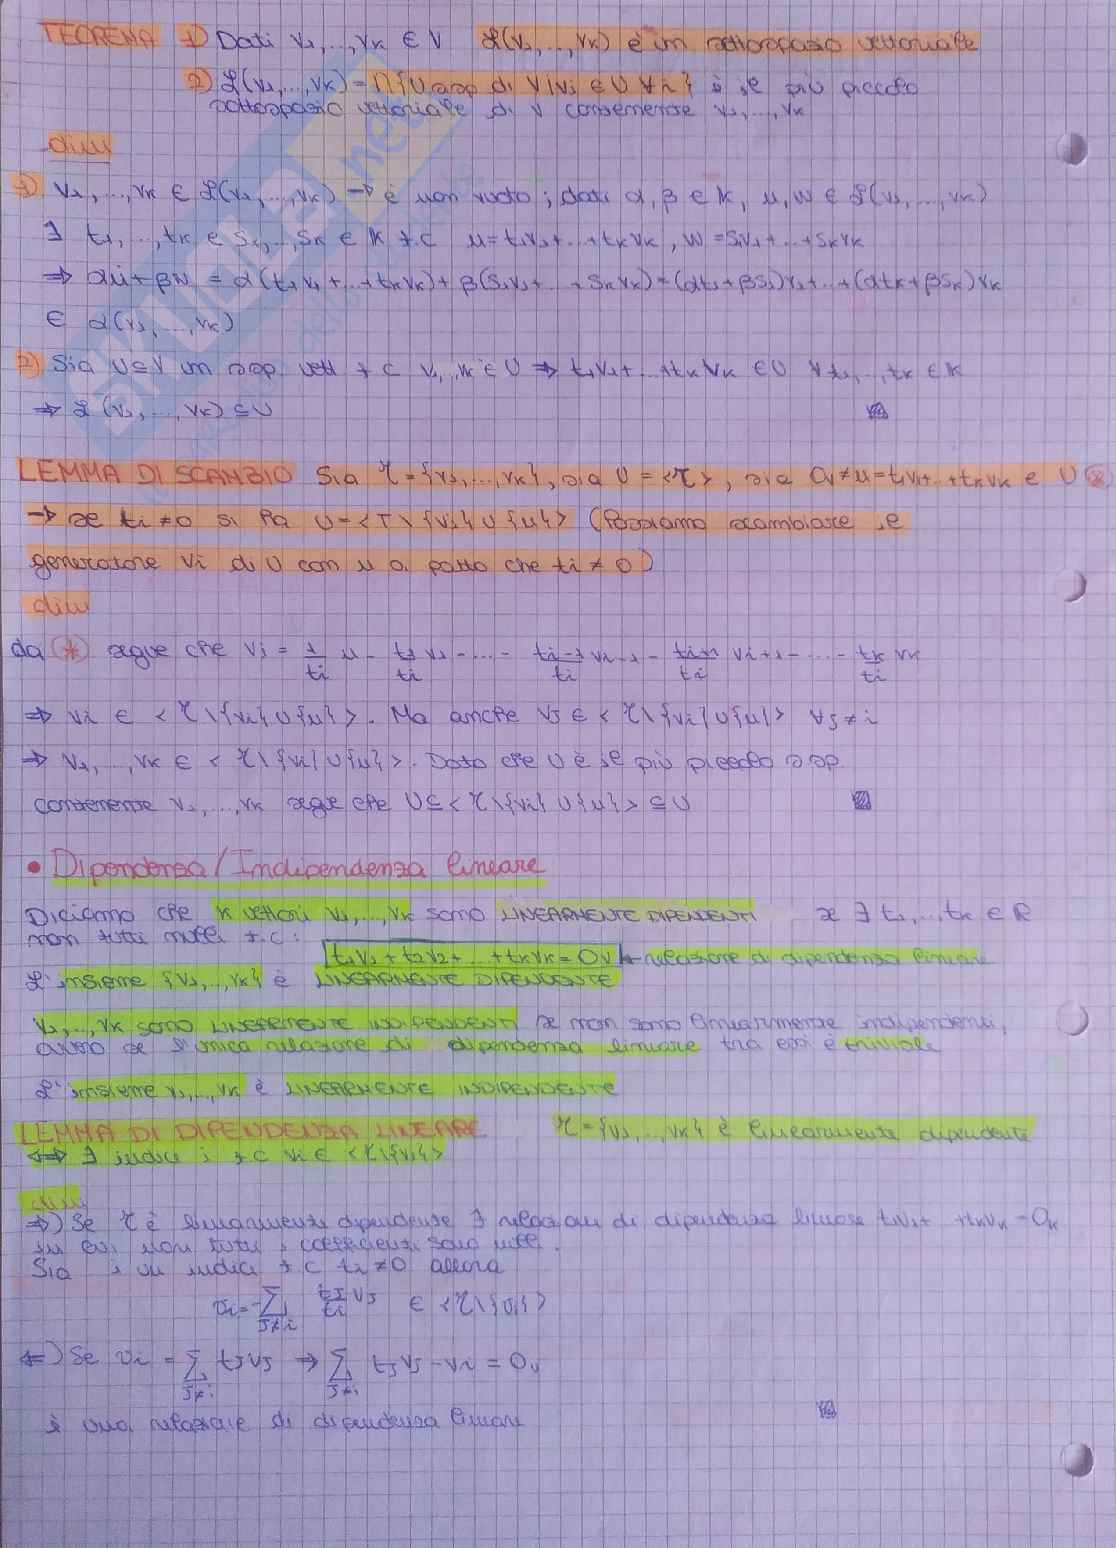 TEOREMA 1) Dati v₁,...,vₖ ∈ V L(v₁,...,vₖ) è un sottospazio vettoriale
2) L(v₁,...,vₖ) = ∩{U ssp di V | vᵢ ∈ U ∀i} è il più piccolo
sottospazio vettoriale di V contenente v₁,...,vₖ
dim
1) v₁,...,vₖ ∈ L(v₁,...,vₖ) → è non vuoto; dati α, β ∈ K, u, w ∈ L(v₁,...,vₖ)
∃ t₁,...,tₖ e s₁,...,sₖ ∈ K t.c u = t₁v₁+...+tₖvₖ, w = s₁v₁+...+sₖvₖ
⇒ αu+βw = α(t₁v₁+...+tₖvₖ)+β(s₁v₁+...+sₖvₖ) = (αt₁+βs₁)v₁+...+(αtₖ+βsₖ)vₖ
∈ L(v₁,...,vₖ)
2) Sia U⊆V un ssp. vett t.c v₁,..,vₖ ∈ U ⇒ t₁v₁+...+tₖvₖ ∈ U ∀ t₁,...,tₖ ∈ K
⇒ L(v₁,...,vₖ) ⊆ U
LEMMA DI SCAMBIO Sia τ = {v₁,...,vₖ}, sia U = <τ>, sia 0ᵥ ≠ u = t₁v₁+...+tₖvₖ ∈ U (*)
→ se tᵢ ≠ 0 si ha U = <τ \ {vᵢ} ∪ {u}> (Possiamo scambiare il
generatore vᵢ di U con u a patto che tᵢ ≠ 0)
dim
da (*) segue che vᵢ = 1/tᵢ u - t₁/tᵢ v₁ - ... - tᵢ₋₁/tᵢ vᵢ₋₁ - tᵢ₊₁/tᵢ vᵢ₊₁ - ... - tₖ/tᵢ vₖ
⇒ vᵢ ∈ <τ \ {vᵢ} ∪ {u}>. Ma anche vⱼ ∈ <τ \ {vᵢ} ∪ {u}> ∀j ≠ i
⇒ v₁,...,vₖ ∈ <τ \ {vᵢ} ∪ {u}>. Dato che U è il più piccolo ssp.
contenente v₁,...,vₖ segue che U ⊆ <τ \ {vᵢ} ∪ {u}> ⊆ U
• Dipendenza/Indipendenza lineare
Diciamo che k vettori v₁,...,vₖ sono LINEARMENTE DIPENDENTI se ∃ t₁,...,tₖ ∈ R
non tutti nulli t.c:
t₁v₁+t₂v₂+...+tₖvₖ = 0ᵥ ← relazione di dipendenza lineare
L'insieme {v₁,...,vₖ} è LINEARMENTE DIPENDENTE
v₁,...,vₖ sono LINEARMENTE INDIPENDENTI se non sono linearmente indipendenti,
ovvero se l'unica relazione di dipendenza lineare tra essi è triviale
L'insieme v₁,...,vₖ è LINEARMENTE INDIPENDENTE
LEMMA DI DIPENDENZA LINEARE τ = {v₁,...,vₖ} è linearmente dipendente
⇔ ∃ indice i t.c vᵢ ∈ <τ \ {vᵢ}>
dim
⇒) Se τ è linearmente dipendente ∃ relazione di dipendenza lineare t₁v₁+ +tₖvₖ = 0ₖ
in cui non tutti i coefficienti sono nulli.
Sia i un indice t.c tᵢ ≠ 0 allora
vᵢ = -∑ⱼ≠ᵢ tⱼ/tᵢ vⱼ ∈ <τ \ {vᵢ}>
⇐) Se vᵢ = ∑ⱼ≠ᵢ tⱼvⱼ ⇒ ∑ⱼ≠ᵢ tⱼvⱼ - vᵢ = 0ᵥ
è una relazione di dipendenza lineare